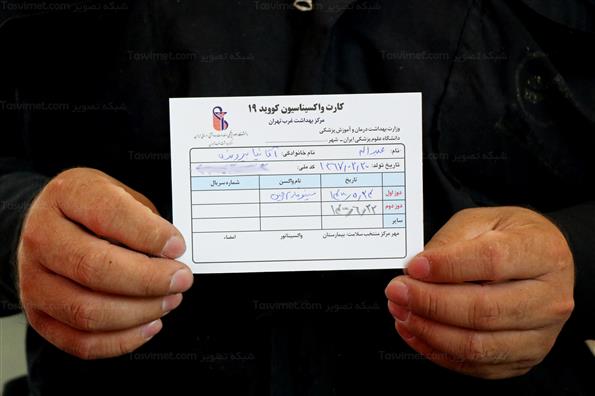 شبکه تصویر Tasvimet.com
کارت واکسیناسیون کووید ۱۹
مرکز بهداشت غرب تهران
وزارت بهداشت درمان و آموزش پزشکی
دانشگاه علوم پزشکی ایران - شهر
نام: نام خانوادگی:
تاریخ تولد: ۱۳۶۷/۰۲/۲۰ کد ملی:
تاریخ نام واکسن شماره سریال
دوز اول ۱۴۰۰/۵/۲۴ سینوفارم
دوز دوم ۱۴۰۰/۶/۲۲
سایر
مهر مرکز منتخب سلامت: بیمارستان واکسیناتور امضاء: